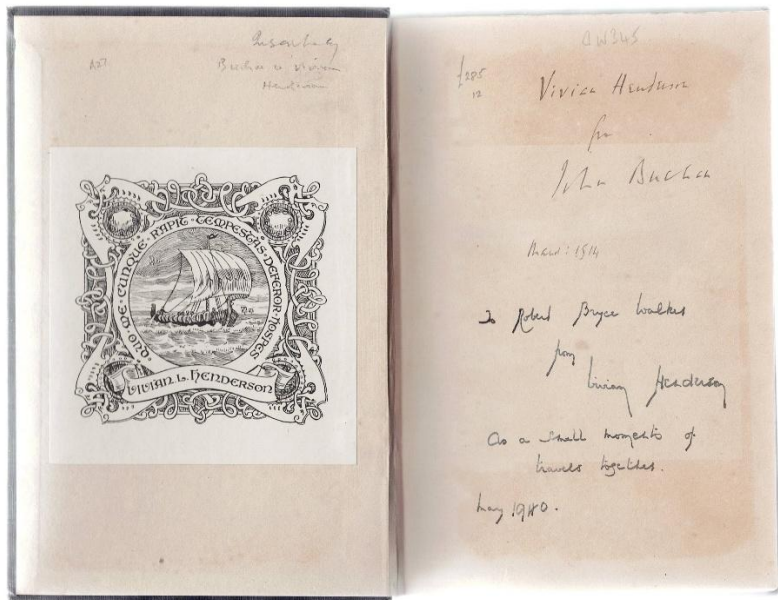 Presentation
Buchan to Vivian
Henderson
QUO ME CUNQUE RAPIT TEMPESTAS DEFEROR HOSPES
VIVIAN L. HENDERSON
£285
12
Vivian Henderson
from
John Buchan
March: 1914
To Robert Bryce Walker
from
Vivian Henderson
As a small momento of
travels together.
May 1940.